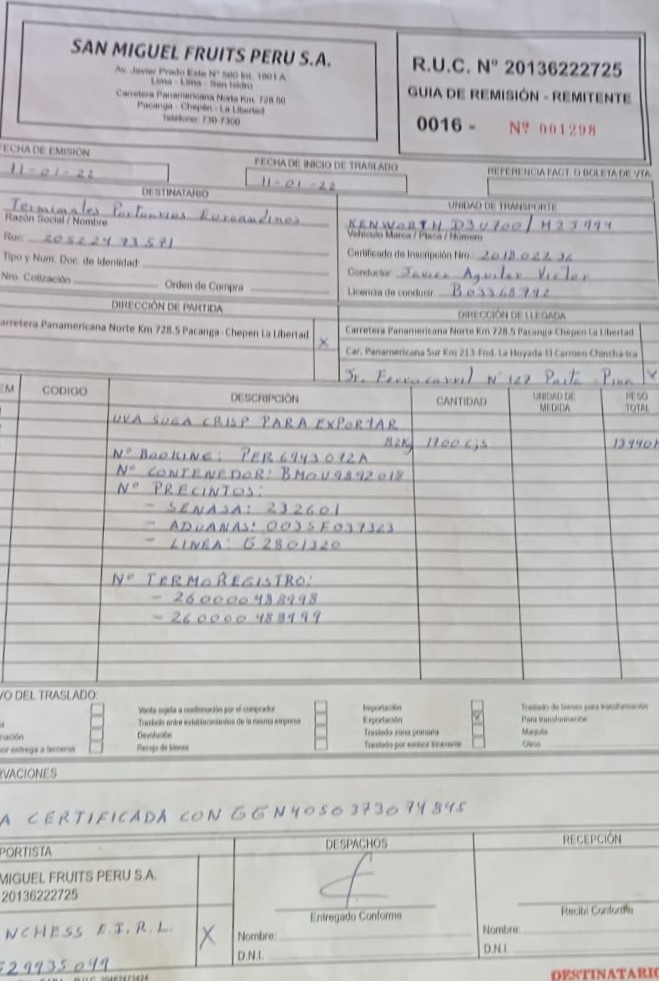 SAN MIGUEL FRUITS PERU S.A.
Av. Javier Prado Este N° 560 Int. 1801 A
Lima - Lima - San Isidro
Carretera Panamericana Norte Km. 728.50
Pacanga - Chepén - La Libertad
Teléfono: 730-7300
R.U.C. N° 20136222725
GUIA DE REMISIÓN - REMITENTE
0016 - Nº 001298
FECHA DE EMISIÓN
11-01-22
FECHA DE INICIO DE TRASLADO
11-01-22
REFERENCIA FACT. O BOLETA DE VTA.
DESTINATARIO
Terminales Portuarios Euroandinos
Razón Social / Nombre
Ruc:
Tipo y Num. Doc. de Identidad:
Nro. Cotización Orden de Compra
UNIDAD DE TRANSPORTE
KENWORTH
Vehículo Marca / Placa / Número
Certificado de Inscripción Nro.
Conductor Javier Aguilar Victor
Licencia de conducir: B03368792
DIRECCIÓN DE PARTIDA
arretera Panamericana Norte Km 728.5 Pacanga - Chepen La Libertad X
DIRECCIÓN DE LLEGADA
Carretera Panamericana Norte Km 728.5 Pacanga Chepen La Libertad
Car. Panamericana Sur Km 213 Fnd. La Hoyada El Carmen Chincha-Ica
Jr. Ferrocarril N° 127 Paita - Piura X
EM CODIGO DESCRIPCIÓN CANTIDAD UNIDAD DE MEDIDA PESO TOTAL
UVA SUGA CRISP PARA EXPORTAR
8.2Kg 1700 cjs 13940K
N° BOOKING: PER6943072A
N° CONTENEDOR: BMOU9892018
N° PRECINTOS:
- SENASA: 232601
- ADUANAS: 0035F037323
- LINEA: G2801320
N° TERMOREGISTRO:
- 260000488998
- 260000488999
VO DEL TRASLADO:
Venta sujeta a confirmación por el comprador
Traslado entre establecimientos de la misma empresa
Devolución
Recojo de bienes
or entrega a terceros
Importación
Exportación X
Traslado zona primaria
Traslado por emisor itinerante
Traslado de bienes para transformación
Para transformación
Maquila
Otros
RVACIONES
A CERTIFICADA CON GGN4050373074845
PORTISTA
MIGUEL FRUITS PERU S.A.
20136222725
NCHESS E.I.R.L. X
529935049
DESPACHOS
Entregado Conforme
Nombre:
D.N.I.
RECEPCIÓN
Recibí Conforme
Nombre:
D.N.I.
DESTINATARIO